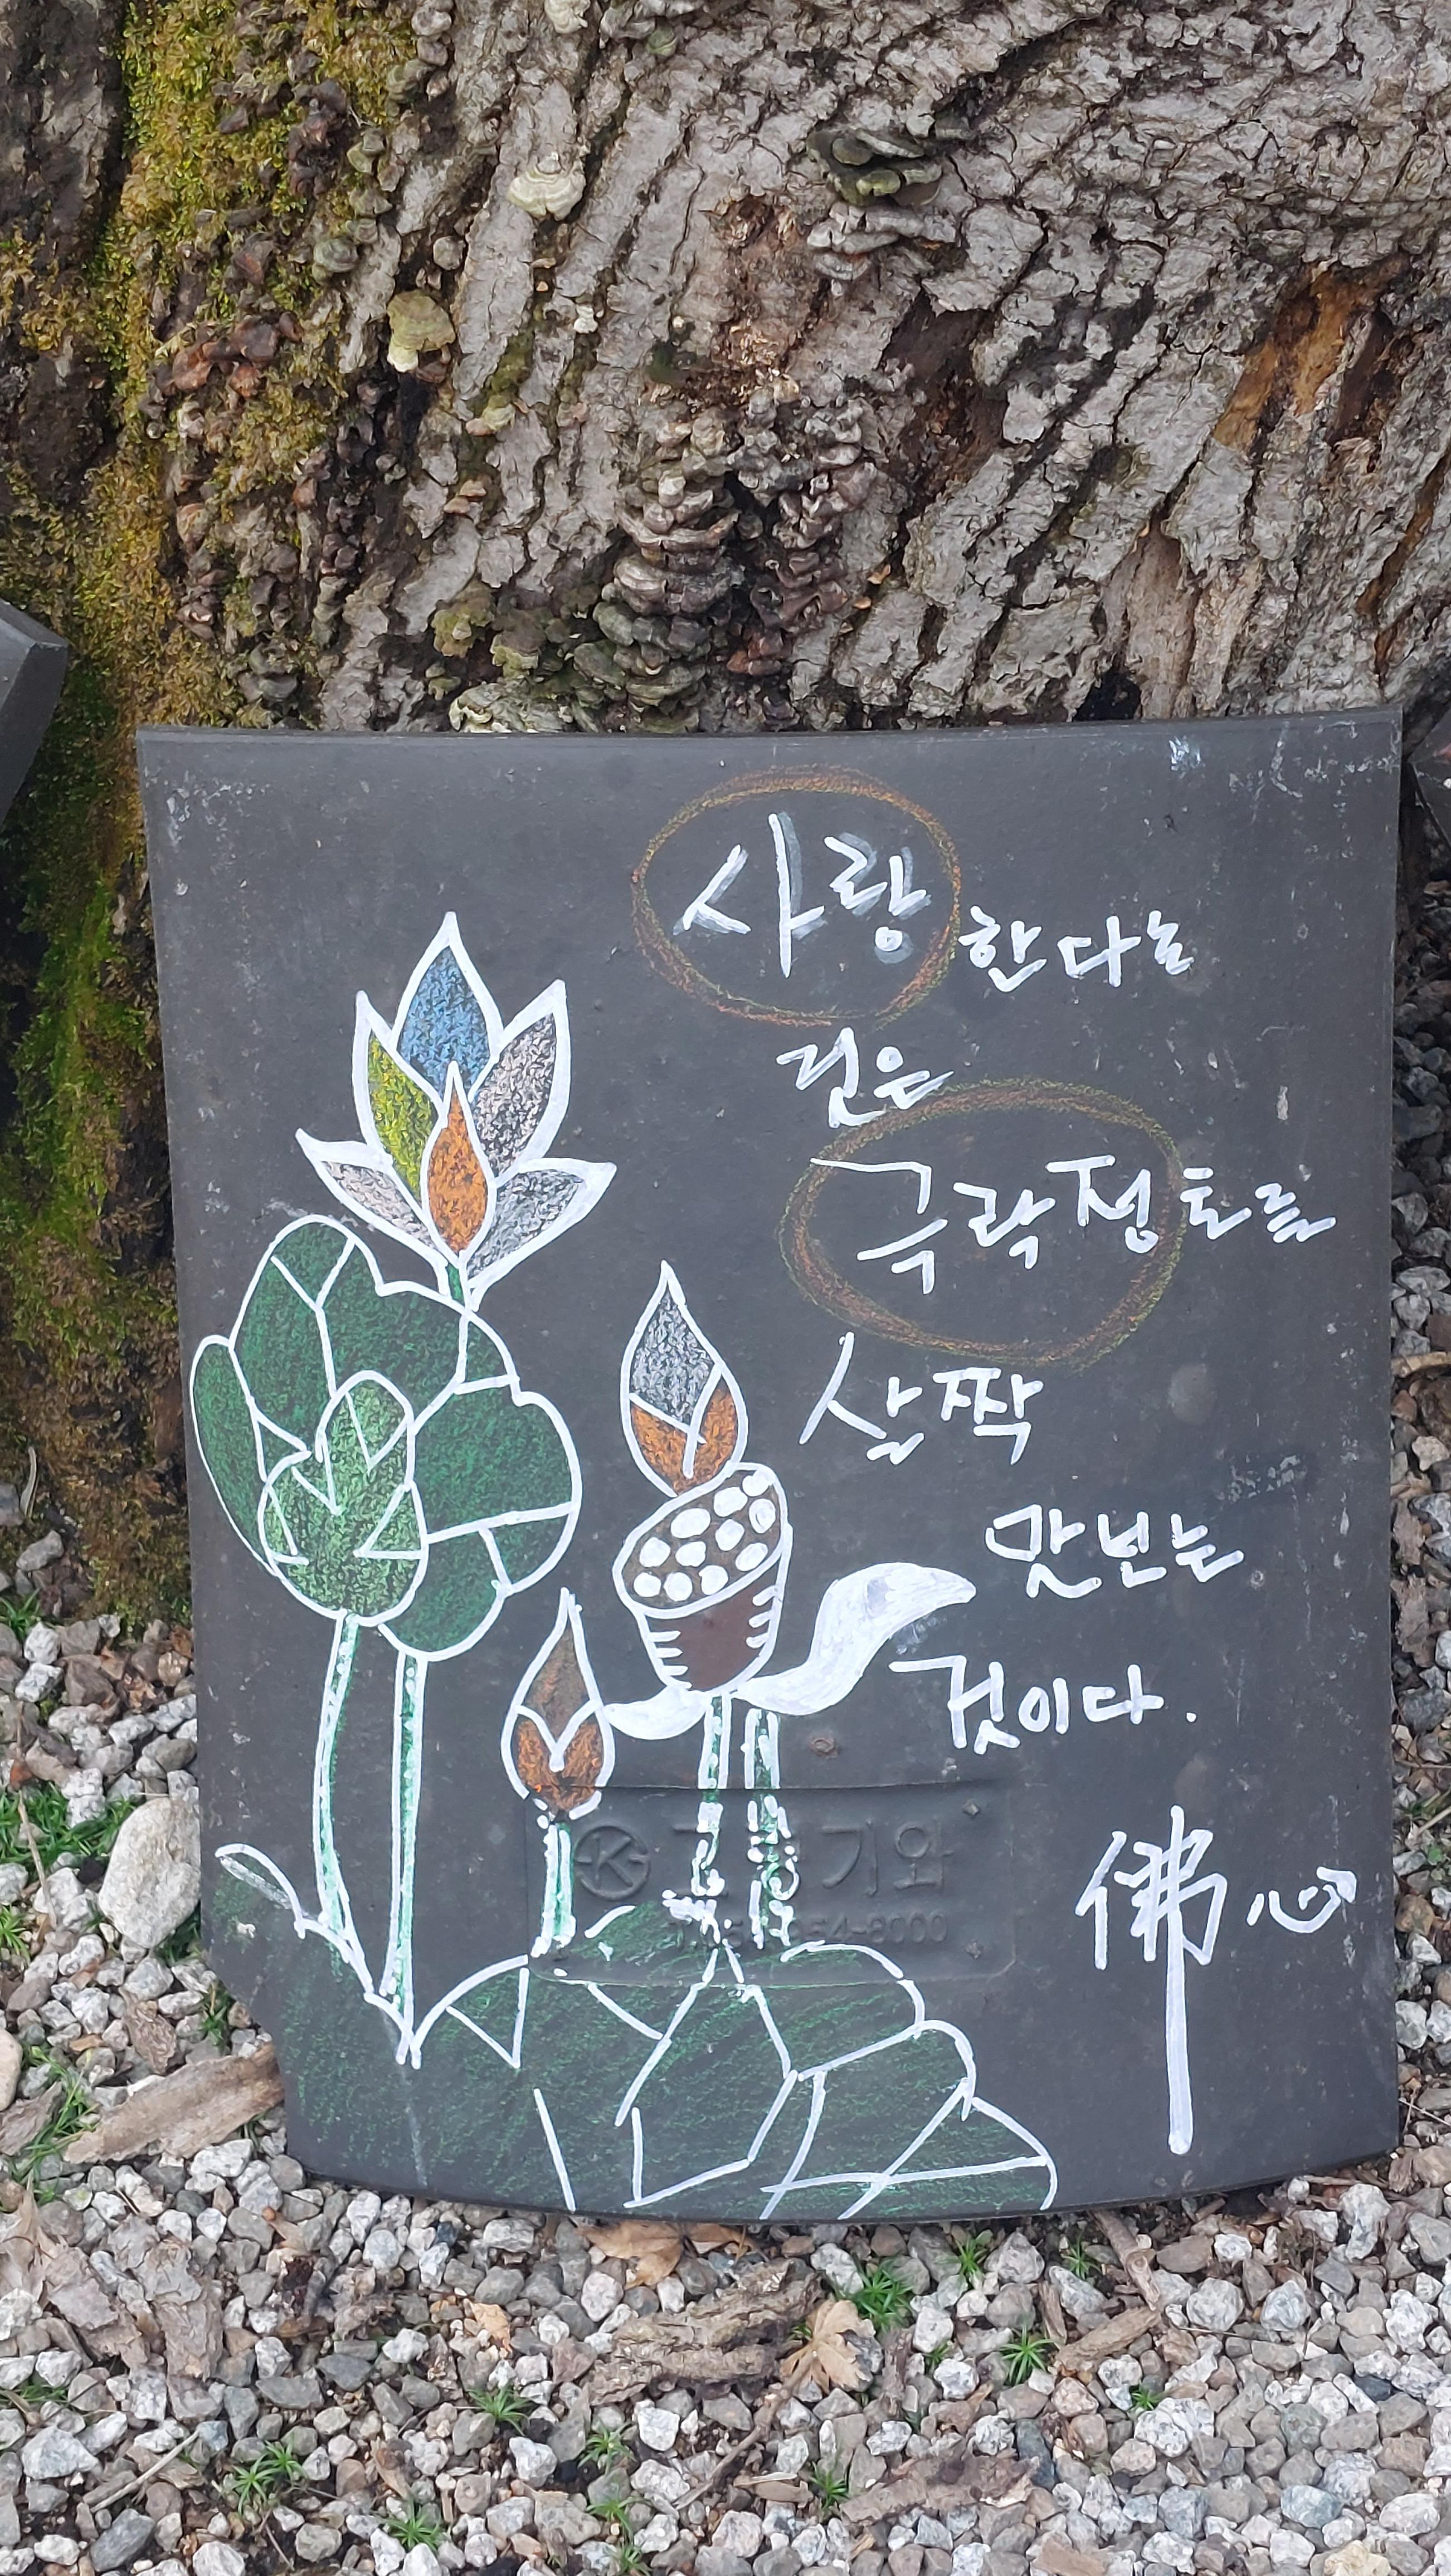 사랑한다는
것은
극락정토를
살짝
맛보는
것이다.
佛心
기와
54-8000